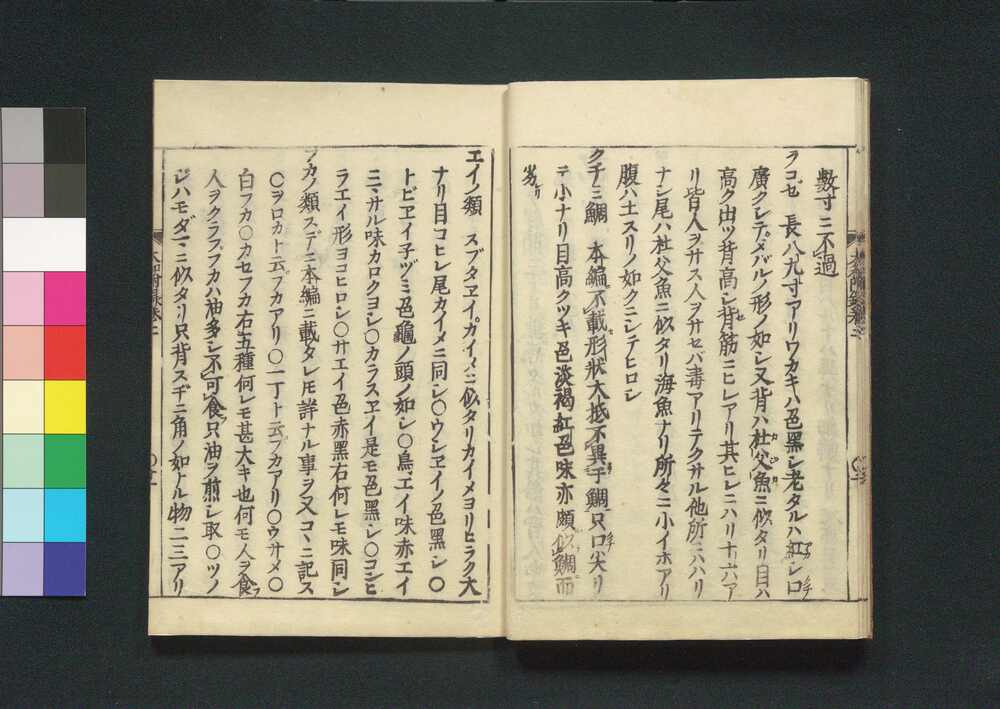 數寸ニ不過
ヲコゼ 長八九寸アリワカキハ色黑シ老タルハ紅シ口
廣クシテメバルノ形ノ如シ又背ハ杜父魚ニ似タリ目ハ
高ク出ツ背高シ背筋ニヒレアリ其ヒレニハリ十六ア
リ皆人ヲサス人ヲサセバ毒アリテクサル他所ニハハリ
ナシ尾ハ杜父魚ニ似タリ海魚ナリ所々ニ小イホアリ
腹ハ土スリノ如クニシテヒロシ
クチミ鯛 本編不載形狀大抵不異于鯛只口尖リ
テ小ナリ目高クツキ色淡褐紅色味亦頗似鯛而
劣リ
エイノ類 スブタヱイガイメニ似タリカイメヨリヒラク大
ナリ目コヒレ尾カイメニ同シ○ウシヱイノ色黑シ○
トビヱイ子ヅミ色龜ノ頭ノ如シ○鳥エイ味赤エイ
ニサル味カロクヨシ○カラスヱイ是モ色黑シ○コシヒ
ラエイ形ヨコヒロシ○サエイ色赤黑右何レモ味同シ
フカノ類スデニ本編ニ載タレ𪜈詳ナル事ヲ又コヽニ記ス
○ヲロカト云フカアリ○一丁ト云フカアリ○ウサメ○
白フカ○カセフカ右五種何レモ甚大キ也何モ人ヲ食フ
人ヲクラフフカハ油多シ不可食只油ヲ煎シ取○ツノ
ジハモダマニ似タリ只背スヂニ角ノ如ナル物二三アリ